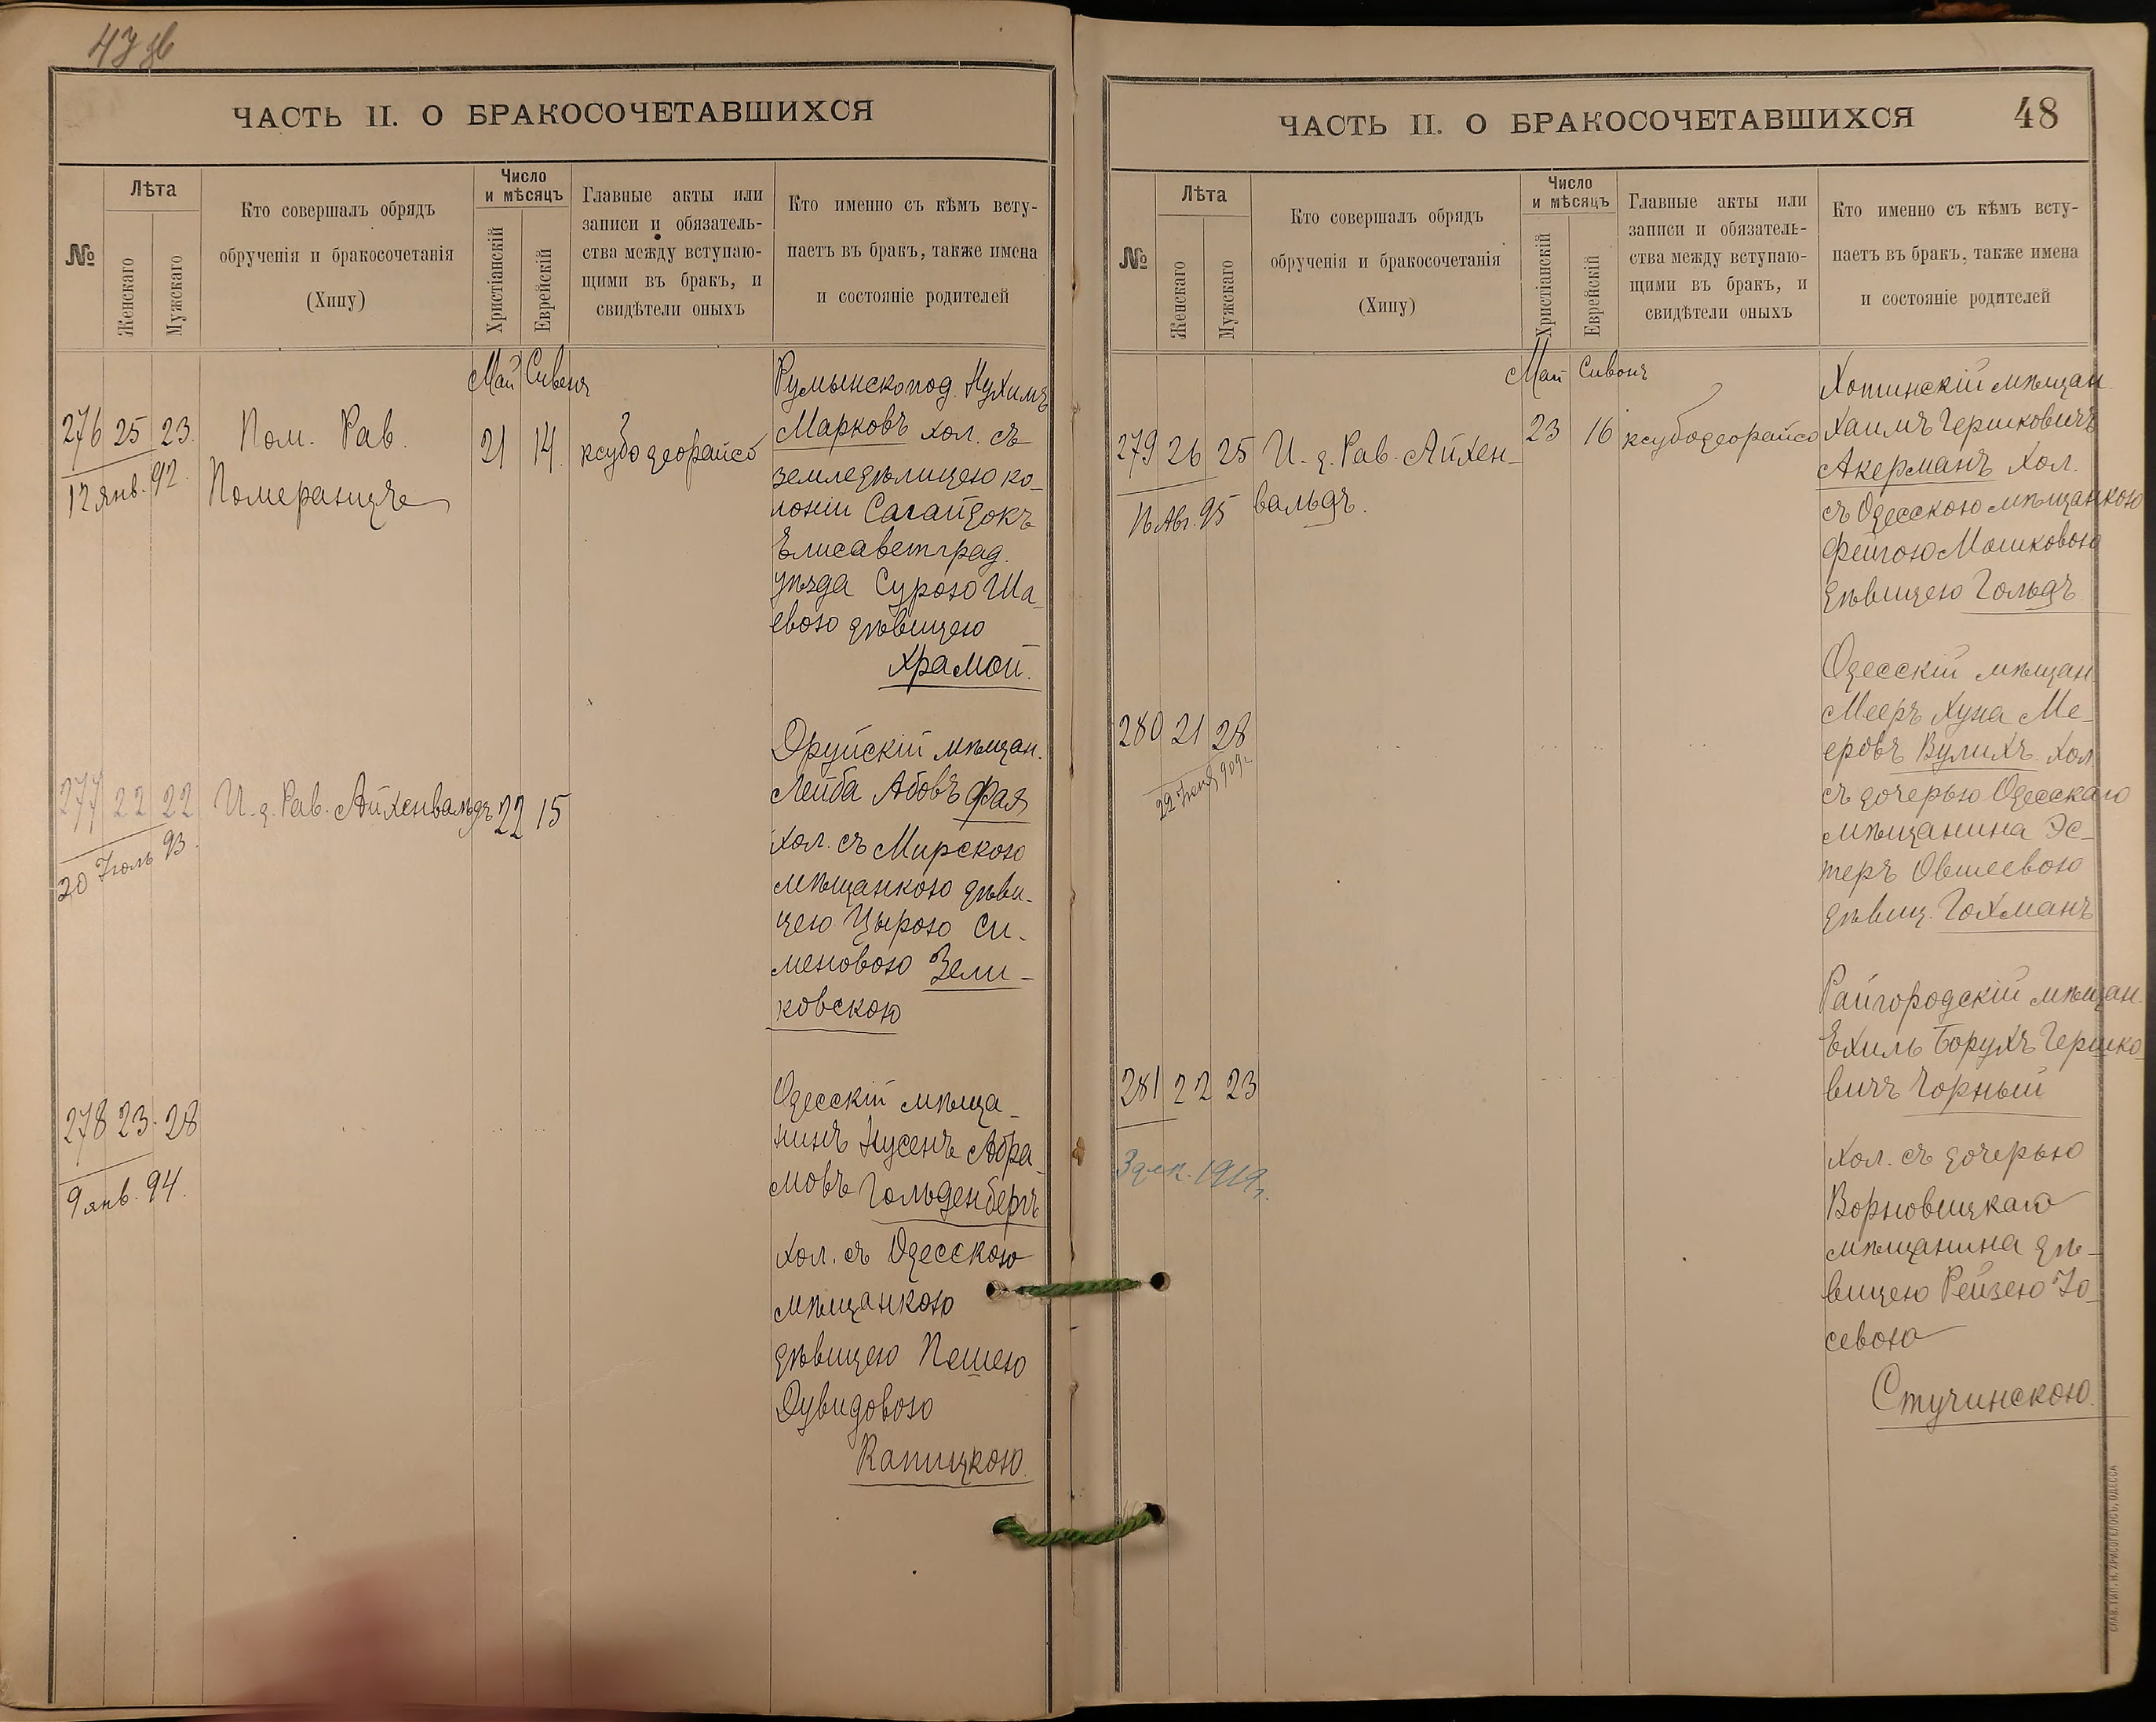 47 об
ЧАСТЬ II. О БРАКОСОЧЕТАВШИХСЯ
№
Лѣта
Женскаго
Мужскаго
Кто совершалъ обрядъ
обрученія и бракосочетанія
(Хипу)
Число
и мѣсяцъ
Христіанскій
Еврейскій
Главные акты или
записи и обязатель-
ства между вступаю-
щими въ бракъ, и
свидѣтели оныхъ
Кто именно съ кѣмъ всту-
паетъ въ бракъ, также имена
и состояніе родителей
Май Сивонъ
276 25 23.
12 янв. 92.
Пом. Рав.
Померанцъ
21 14.
ксубо деорайсо
Румынскопод. Нухимъ
Марковъ хол. съ
земледѣлицею ко-
лоніи Сагайдокъ
Елисаветград.
уѣзда Сурою Ша-
евою дѣвицею
Храмой.
277 22 22
20 Іюль 93.
И. д. Рав. Айхенвальдъ 22 15
Друйскій мѣщан.
Лейба Абовъ Фая
хол. съ Мирскою
мѣщанкою дѣви-
цею Цырою Си-
меновою Зели-
ковскою
278 23. 28
9 янв. 94.
Одесскій мѣща-
нинъ Нусенъ Абра-
мовъ Гольденбергъ
хол. съ Одесскою
мѣщанкою
дѣвицею Пешею
Дувидовою
Капицкою.
ЧАСТЬ II. О БРАКОСОЧЕТАВШИХСЯ 48
№
Лѣта
Женскаго
Мужскаго
Кто совершалъ обрядъ
обрученія и бракосочетанія
(Хипу)
Число
и мѣсяцъ
Христіанскій
Еврейскій
Главные акты или
записи и обязатель-
ства между вступаю-
щими въ бракъ, и
свидѣтели оныхъ
Кто именно съ кѣмъ всту-
паетъ въ бракъ, также имена
и состояніе родителей
Май Сивонъ
279 26 25
16 Авг. 95
И. д. Рав. Айхен-
вальдъ.
23 16
ксубо деорайсо
Хотинскій мѣщан.
Хаимъ Гершковичъ
Акерманъ хол.
съ Одесскою мѣщанкою
Фейгою Мошковою
дѣвицею Гольдъ
280 21 28
909г.
Одесскій мѣщан.
Мееръ Хуна Ме-
еровъ Вулихъ хол.
съ дочерью Одесскаго
мѣщанина Эс-
теръ Овшеевою
дѣвиц. Гохманъ
281 22 23
3 дек. 1919г.
Райгородскій мѣщан.
Ехиль Борухъ Гершко-
вичъ Чорный
хол. съ дочерью
Ворновицкаго
мѣщанина дѣ-
вицею Рейзею Іо-
севою
Стучинскою.
СЛАВ. ТИП. Н. ХРИСОГЕЛОСЪ, ОДЕССА